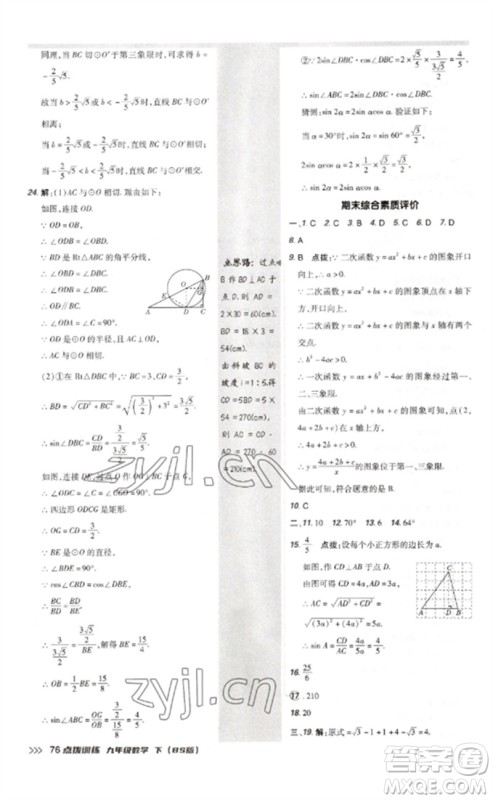 同理,当⊙O′于第三象限时,可求得 b=
-2/5√5.
故当 b>2/5√5 或 b<-2/5√5 时,直线 BC 与⊙O′相离;
当 b=2/5√5 或-2/5√5 时,直线 BC 与⊙O′相切;
当-2/5√5<b<2/5√5 时,直线 BC 与⊙O′相交.
24. 解:(1)AC 与⊙O 相切. 理由如下:
如图,连接 OD.
∵ OD=OB,
∴ ∠ODB=∠OBD.
∵ BD 是 Rt△ABC 的角平分线,
∴ ∠OBD=∠DBC.
∴ ∠ODB=∠DBC.
∴ OD∥BC.
∴ ∠ODA=∠C=90°.
∵ OD 是⊙O 的半径,
∴ AC 与⊙O 相切.
(2)①在 Rt△DBC 中,∵ BC=3,CD=3/2,
∴ BD=√(CD²+BC²)=√((3/2)²+3²)=3√5/2.
∴ sin∠DBC=CD/BD=(3/2)/(3√5/2)=√5/5.
∴ 四边形 ODCG 是矩形.
∴ OG=CD=3/2.
∴ ∠BDE=90°.
∵ cos∠CBD=cos∠DBE,
∴ BC/BD=BD/BE.
∴ 3/(3√5/2)=(3√5/2)/BE,解得 BE=15/4.
∴ OB=1/2 BE=15/8.
点思路:过点
B 作 BD⊥AC 于
点 D. 则 AD=
2×30=60(cm).
54(cm).
由斜坡 BC 的
坡度 i=1:5,得
CD=5BD=5×
54=270(cm)
=210(cm)
②∵ 2sin∠DBC·cos∠DBC=2×√5/5×3/(3√5/2)=4/5,
∴ sin∠ABC=2sin∠DBC·cos∠DBC.
猜测:sin 2α=2sin αcos α. 验证如下:
当 α=30°时,sin 2α=sin 60°=√3/2,
2sin αcos α=2×1/2×√3/2=√3/2,
∴ sin 2α=2sin αcos α.
期末综合素质评价
一、1. C 2. C 3. A 4. D 5. C 6. C 7. D
8. A
9. B 点拨:∵ 二次函数 y=ax²+bx+c 的图象开口向上,
∴ a>0.
∵ 二次函数 y=ax²+bx+c 的图象顶点在 x 轴下
方,开口向上,
∴ 二次函数 y=ax²+bx+c 的图象与 x 轴有两个
交点.
∴ b²-4ac>0.
∴ 一次函数 y=ax+b²-4ac 的图象位于第一、
二、三象限.
由二次函数 y=ax²+bx+c 的图象经过点(2,
4a+2b+c),
得 4a+2b+c>0.
∴ y=(4a+2b+c)/x 的图象位于第一、三象限.
由此可知,只有 B 符合.
10. C
二、11. 10 12. 70° 13. 6 14. 64°
15. 4/5 点拨:设每个小正方形的边长为 a.
如图,作 CD⊥AB 于点 D.
由图可知,CD=4a,AD=3a,
∴ AC=√(AD²+CD²)=
√((3a)²+(4a)²)=5a,
∴ sin A=CD/AC=4a/5a=4/5.
16. 25/6
17. 210
18. 20
76 点拨训练 九年级数学 下(BS版)
zyjl.cn
zyjl.cn
答案圈
MXQE.COM